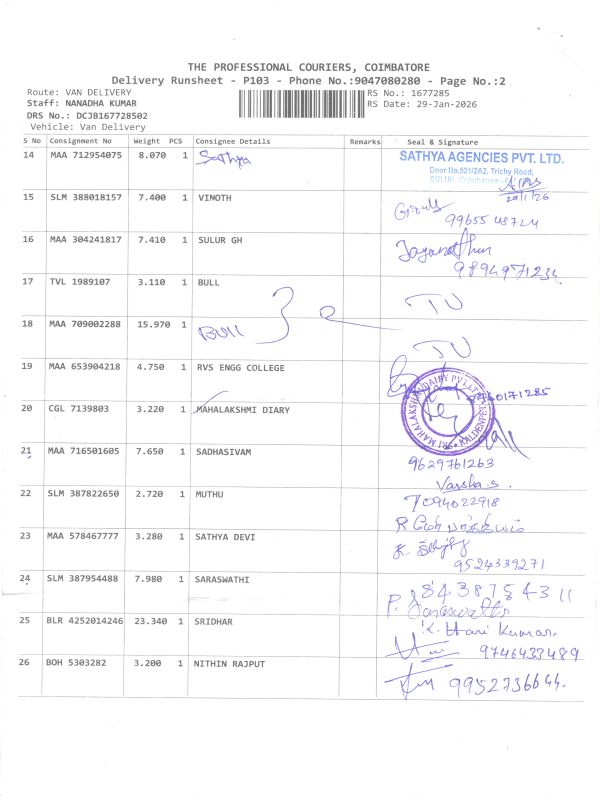 THE PROFESSIONAL COURIERS, COIMBATORE
Delivery Runsheet - P103 - Phone No.:9047080280 - Page No.:2
Route: VAN DELIVERY RS No.: 1677285
Staff: NANADHA KUMAR RS Date: 29-Jan-2026
DRS No.: DCJB167728502
Vehicle: Van Delivery
S No Consignment No Weight PCS Consignee Details Remarks Seal & Signature
14 MAA 712954075 8.070 1 Sathya SATHYA AGENCIES PVT. LTD.
Door No.521/2A2, Trichy Road,
SULUR, Coimbatore
15 SLM 388018157 7.400 1 VINOTH
16 MAA 304241817 7.410 1 SULUR GH
17 TVL 1989107 3.110 1 BULL
18 MAA 709002288 15.970 1 BULL
19 MAA 653904218 4.750 1 RVS ENGG COLLEGE
20 CGL 7139803 3.220 1 MAHALAKSHMI DIARY
21 MAA 716501605 7.650 1 SADHASIVAM 9629761263
22 SLM 387822650 2.720 1 MUTHU Varsha.s.
7094022918
23 MAA 578467777 3.280 1 SATHYA DEVI
9524339271
24 SLM 387954488 7.980 1 SARASWATHI 8438754311
P. Saraswathi
25 BLR 4252014246 23.340 1 SRIDHAR K. Hari Kumar.
9746433489
26 BOH 5303282 3.200 1 NITHIN RAJPUT 9952736644.